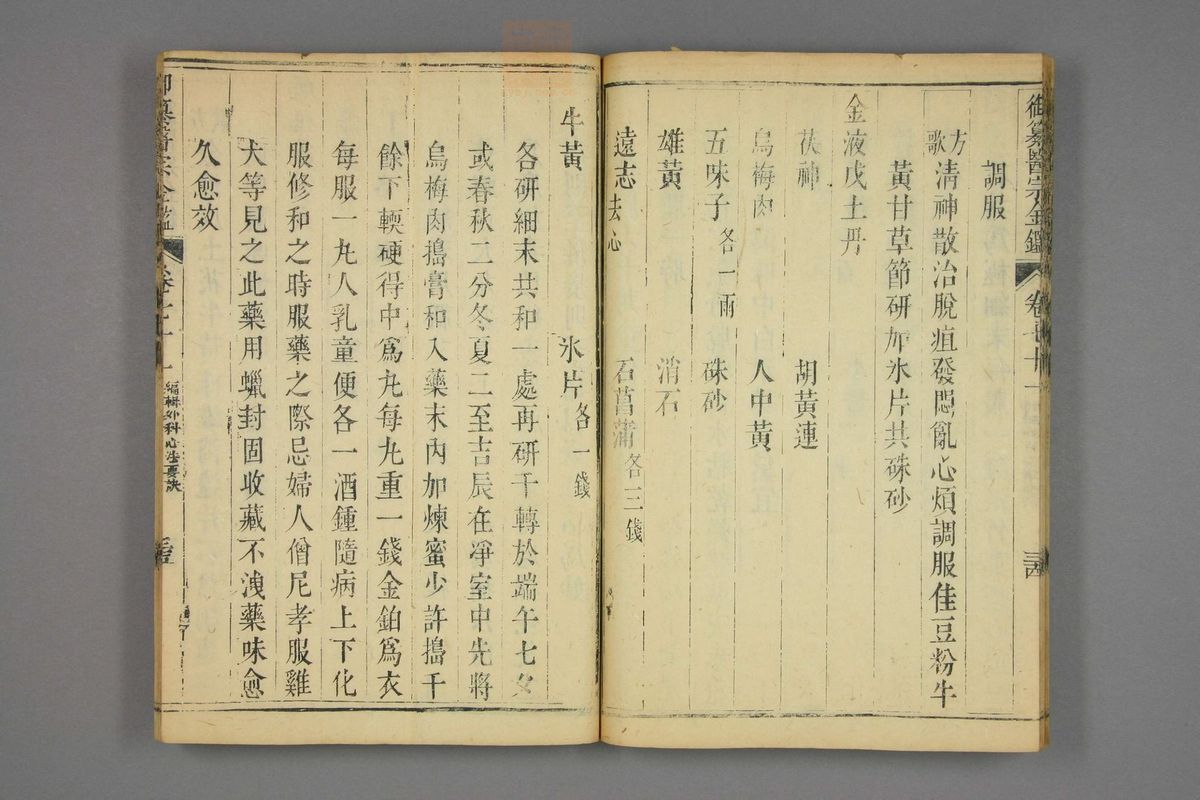 御纂醫宗金鑑 卷七十一 三四
調服
方歌 清神散治脫疽發悶亂心煩調服佳豆粉牛
黃甘草節研加氷片共硃砂
金液戊土丹
茯神 胡黃連
烏梅肉 人中黃
五味子各一兩 硃砂
雄黃 消石
遠志去心 石菖蒲各三錢
牛黃 氷片各一錢
各研細末共和一處再研千轉於端午七夕
或春秋二分冬夏二至吉辰在凈室中先將
烏梅肉搗膏和入藥末內加煉蜜少許搗千
餘下輭硬得中爲丸每丸重一錢金鉑爲衣
每服一丸人乳童便各一酒鍾隨病上下化
服修和之時服藥之際忌婦人僧尼孝服雞
犬等見之此藥用蠟封固收藏不洩藥味愈
久愈效
御纂醫宗金鑑 卷七十一 編輯外科心法要訣 三五